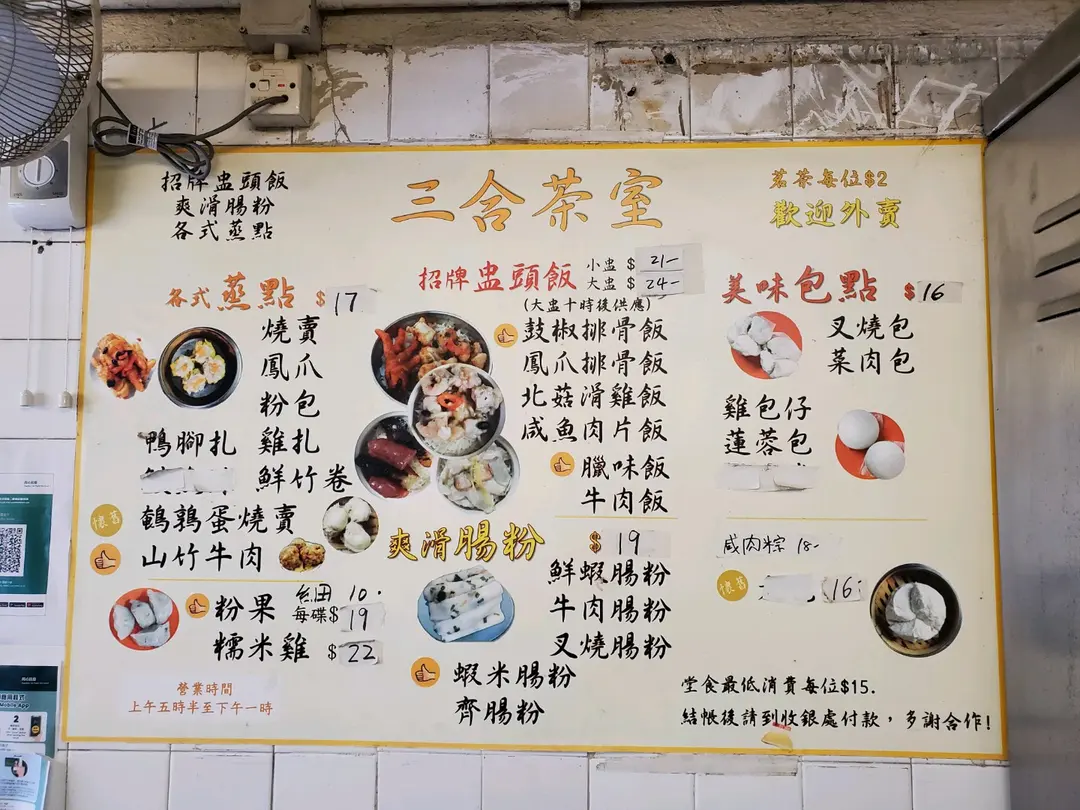 招牌盅頭飯
爽滑腸粉
各式蒸點
三合茶室
茗茶每位$2
歡迎外賣
各式蒸點 $17
燒賣
鳳爪
粉包
鴨腳扎 雞扎
鮮竹卷
懷舊 鵪鶉蛋燒賣
山竹牛肉
細 10.
粉果 每碟$19
糯米雞 $22
營業時間
上午五時半至下午一時
招牌盅頭飯 小盅 $21-
大盅 $24-
(大盅十時後供應)
鼓椒排骨飯
鳳爪排骨飯
北菇滑雞飯
咸魚肉片飯
臘味飯
牛肉飯
爽滑腸粉 $19
鮮蝦腸粉
牛肉腸粉
叉燒腸粉
蝦米腸粉
齊腸粉
美味包點 $16
叉燒包
菜肉包
雞包仔
蓮蓉包
咸肉粽 18-
懷舊 16
堂食最低消費每位$15.
結帳後請到收銀處付款，多謝合作!
2